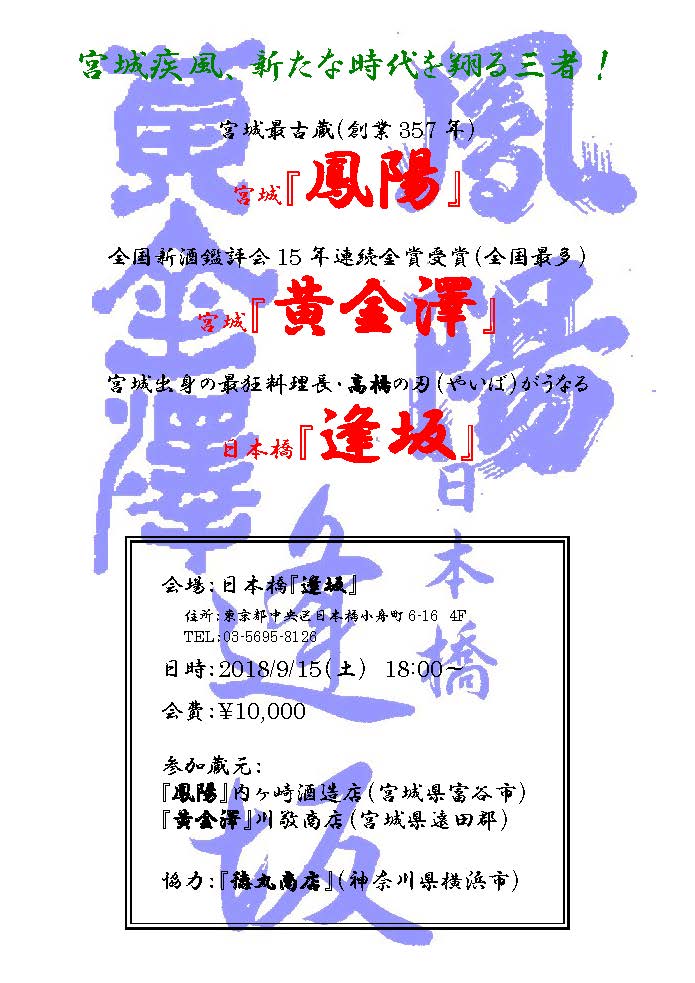 宮城疾風、新たな時代を翔る三者！
宮城最古蔵(創業 357 年)
宮城『鳳陽』
全国新酒鑑評会 15 年連続金賞受賞(全国最多)
宮城『黄金澤』
宮城出身の最狂料理長・高橋の刃(やいば)がうなる
日本橋『逢坂』
鳳陽
黄金澤
日本橋
逢坂
会場:日本橋『逢坂』
住所:東京都中央区日本橋小舟町 6-16 4F
TEL:03-5695-8126
日時:2018/9/15(土) 18:00～
会費:¥10,000
参加蔵元:
『鳳陽』内ヶ崎酒造店(宮城県富谷市)
『黄金澤』川敬商店(宮城県遠田郡)
協力:『徳丸商店』(神奈川県横浜市)